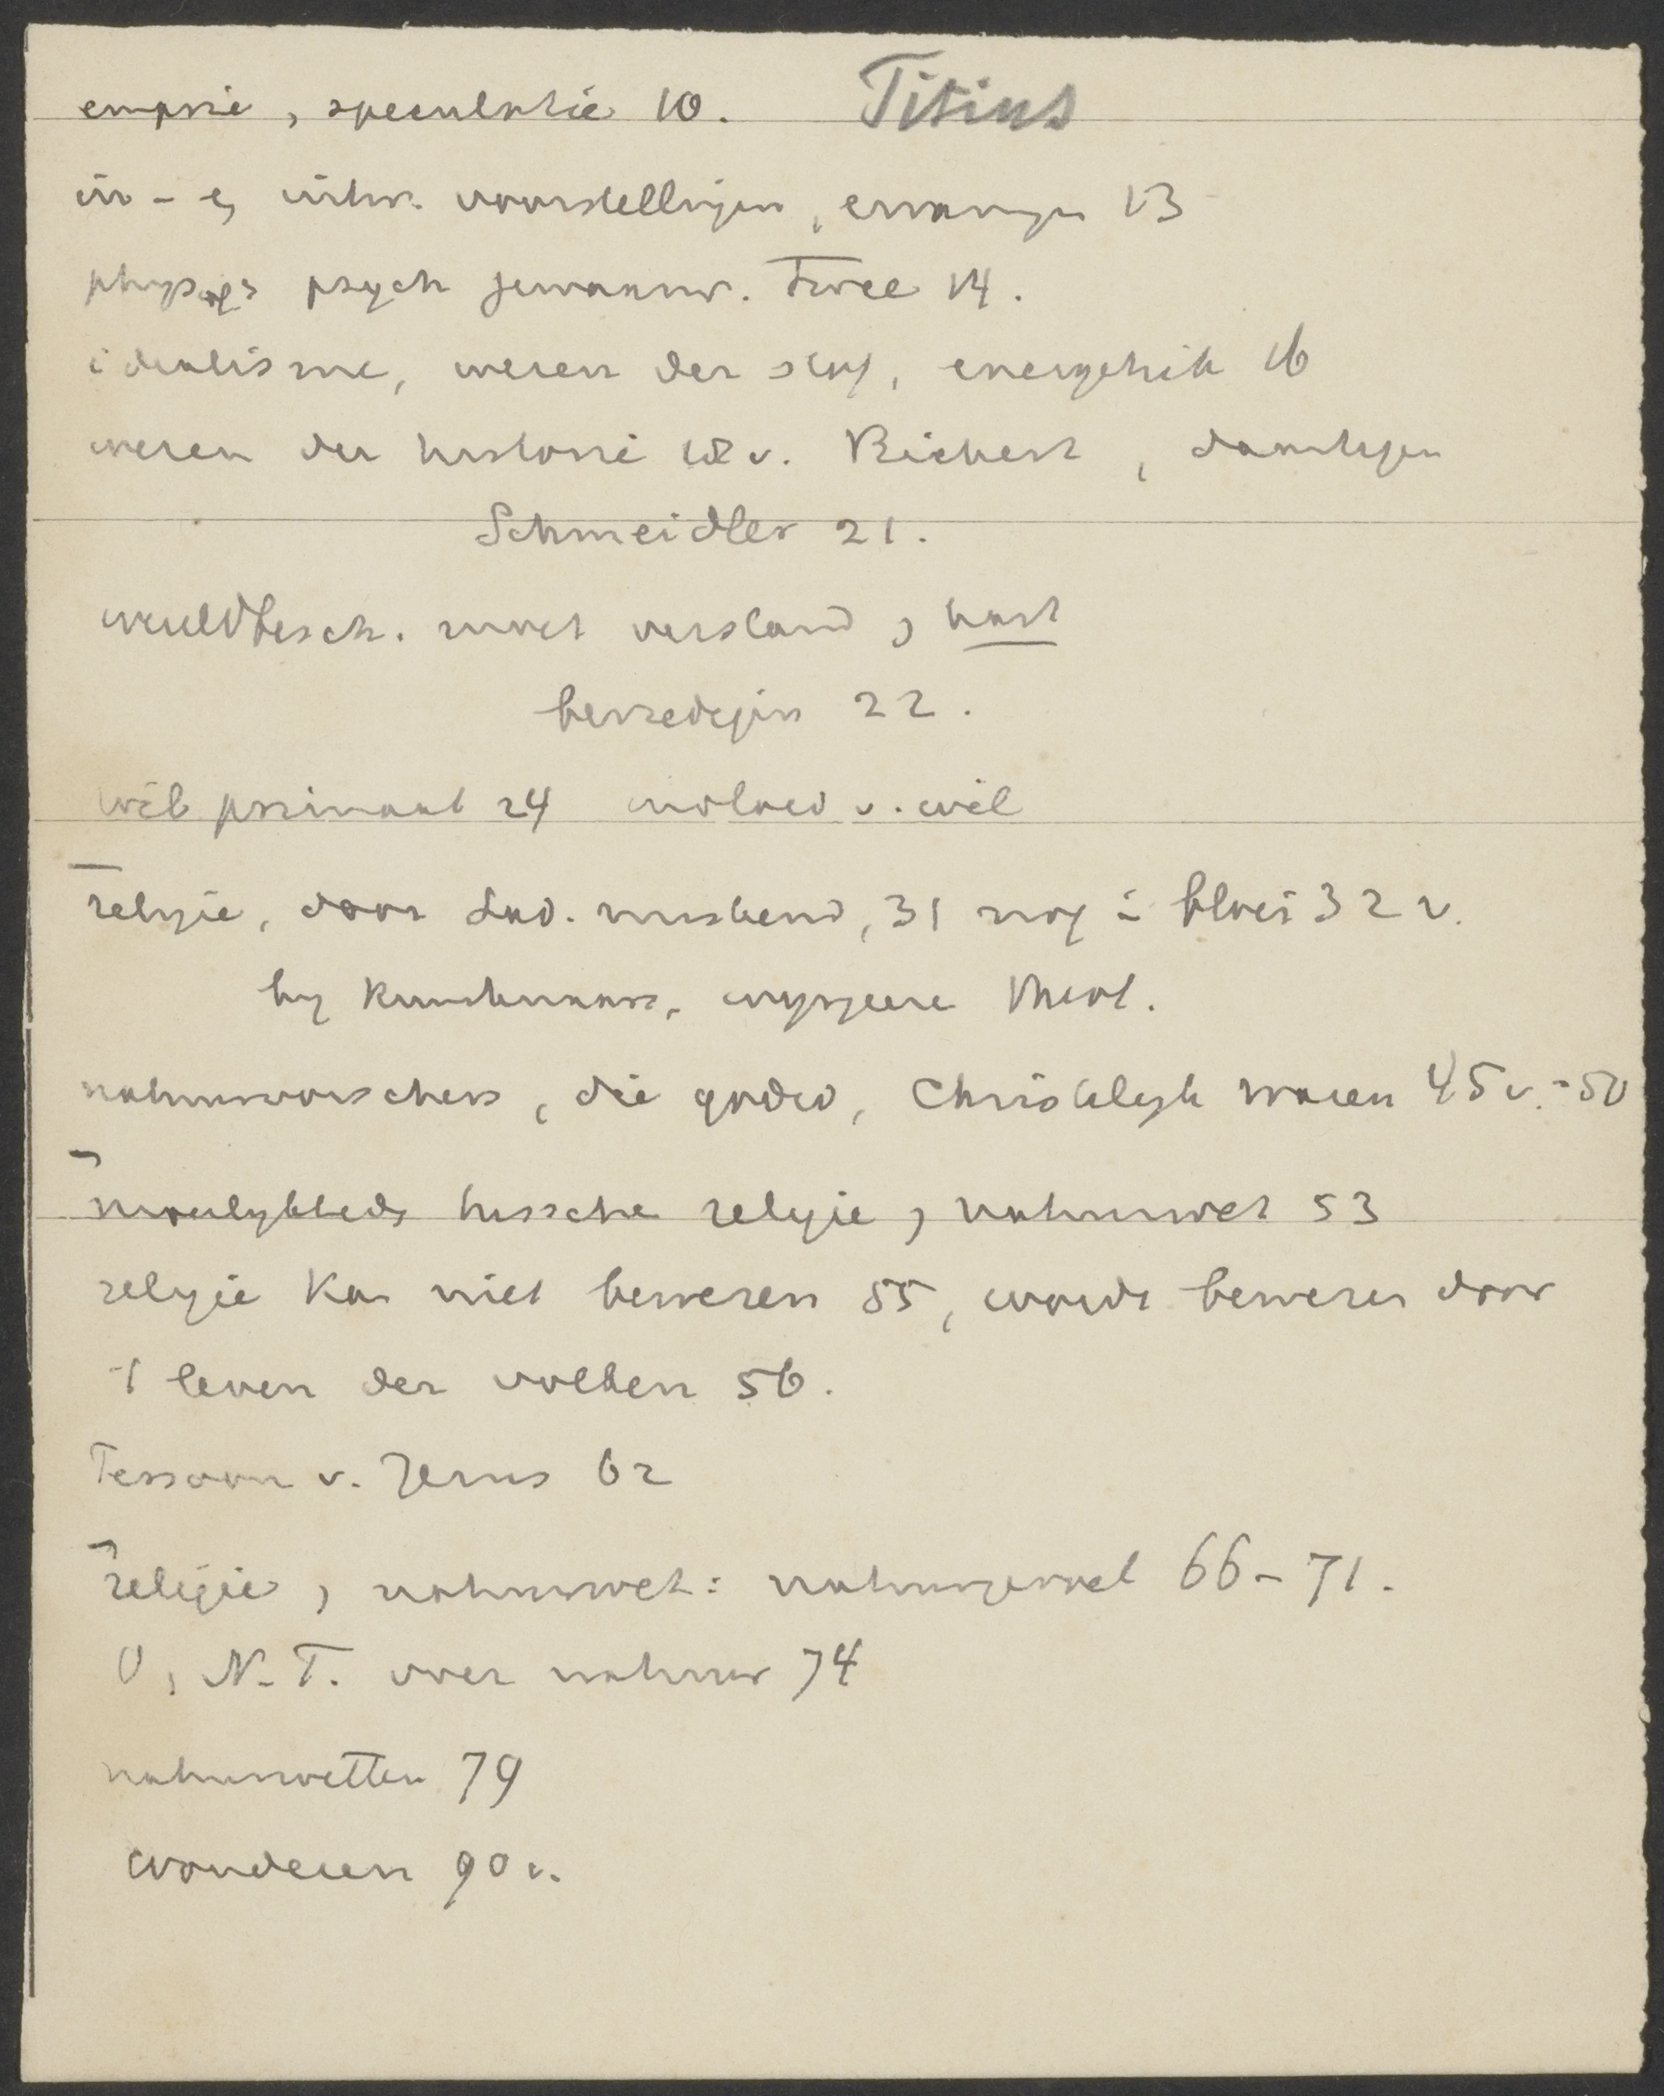 empirie, speculatie 10. Titius
in- & uitw. voorstellingen, ervaringen 13
psych gewaarw. Twee 14.
idealisme, wezen der stof, energetik 16
wezen der historie 18 v. Rickert, daartegen
Schmeidler 21.
wereldbesch. moet verstand, hart
bevredigen 22.
wil primaat 24 invloed v. wil
religie, door miskend, 31 nog in bloei 32 v.
by Kunstenaars, wysgeere Theol.
natuurvorschers, die godsd, Christelyk waren 45 v. - 50
moeilykheds tussche religie, natuurwet 53
religie kan niet bewezen 55, wordt bewezen door
't leven der volken 56.
Persoon v. Jezus 62
religie, natuurwet: natuurgevoel 66-71.
O, N.T. over natuur 74
natuurwetten 79
wonderen 90 v.